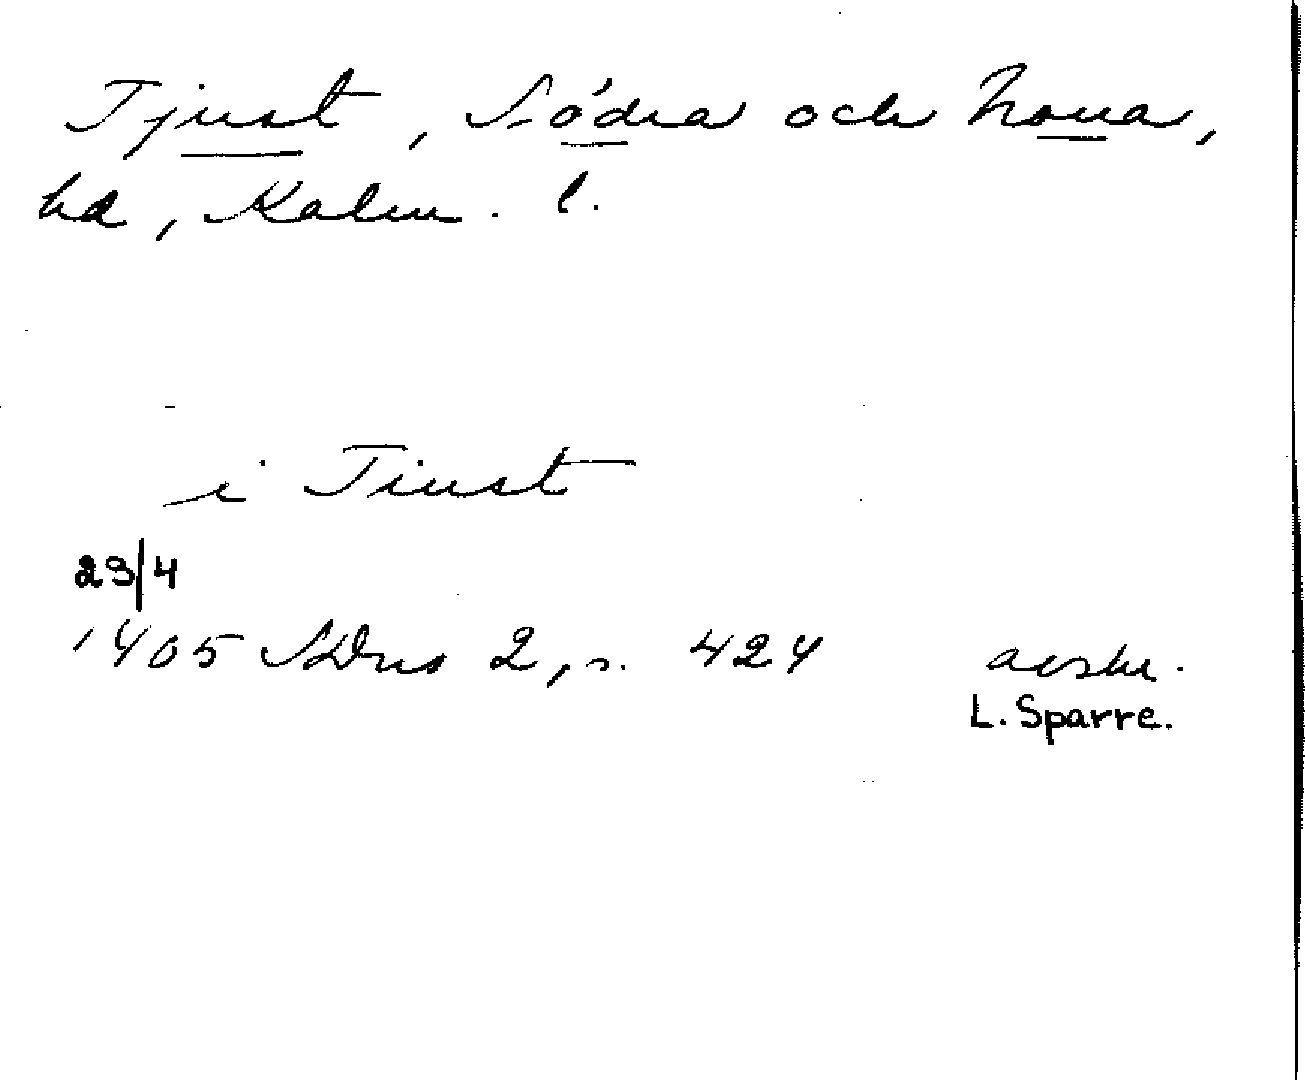 Tjust, Södra och Norra,
hd, Kalm. l.
i Tiust
23/4
1405 SDns 2, s. 424 avskr.
L. Sparre.